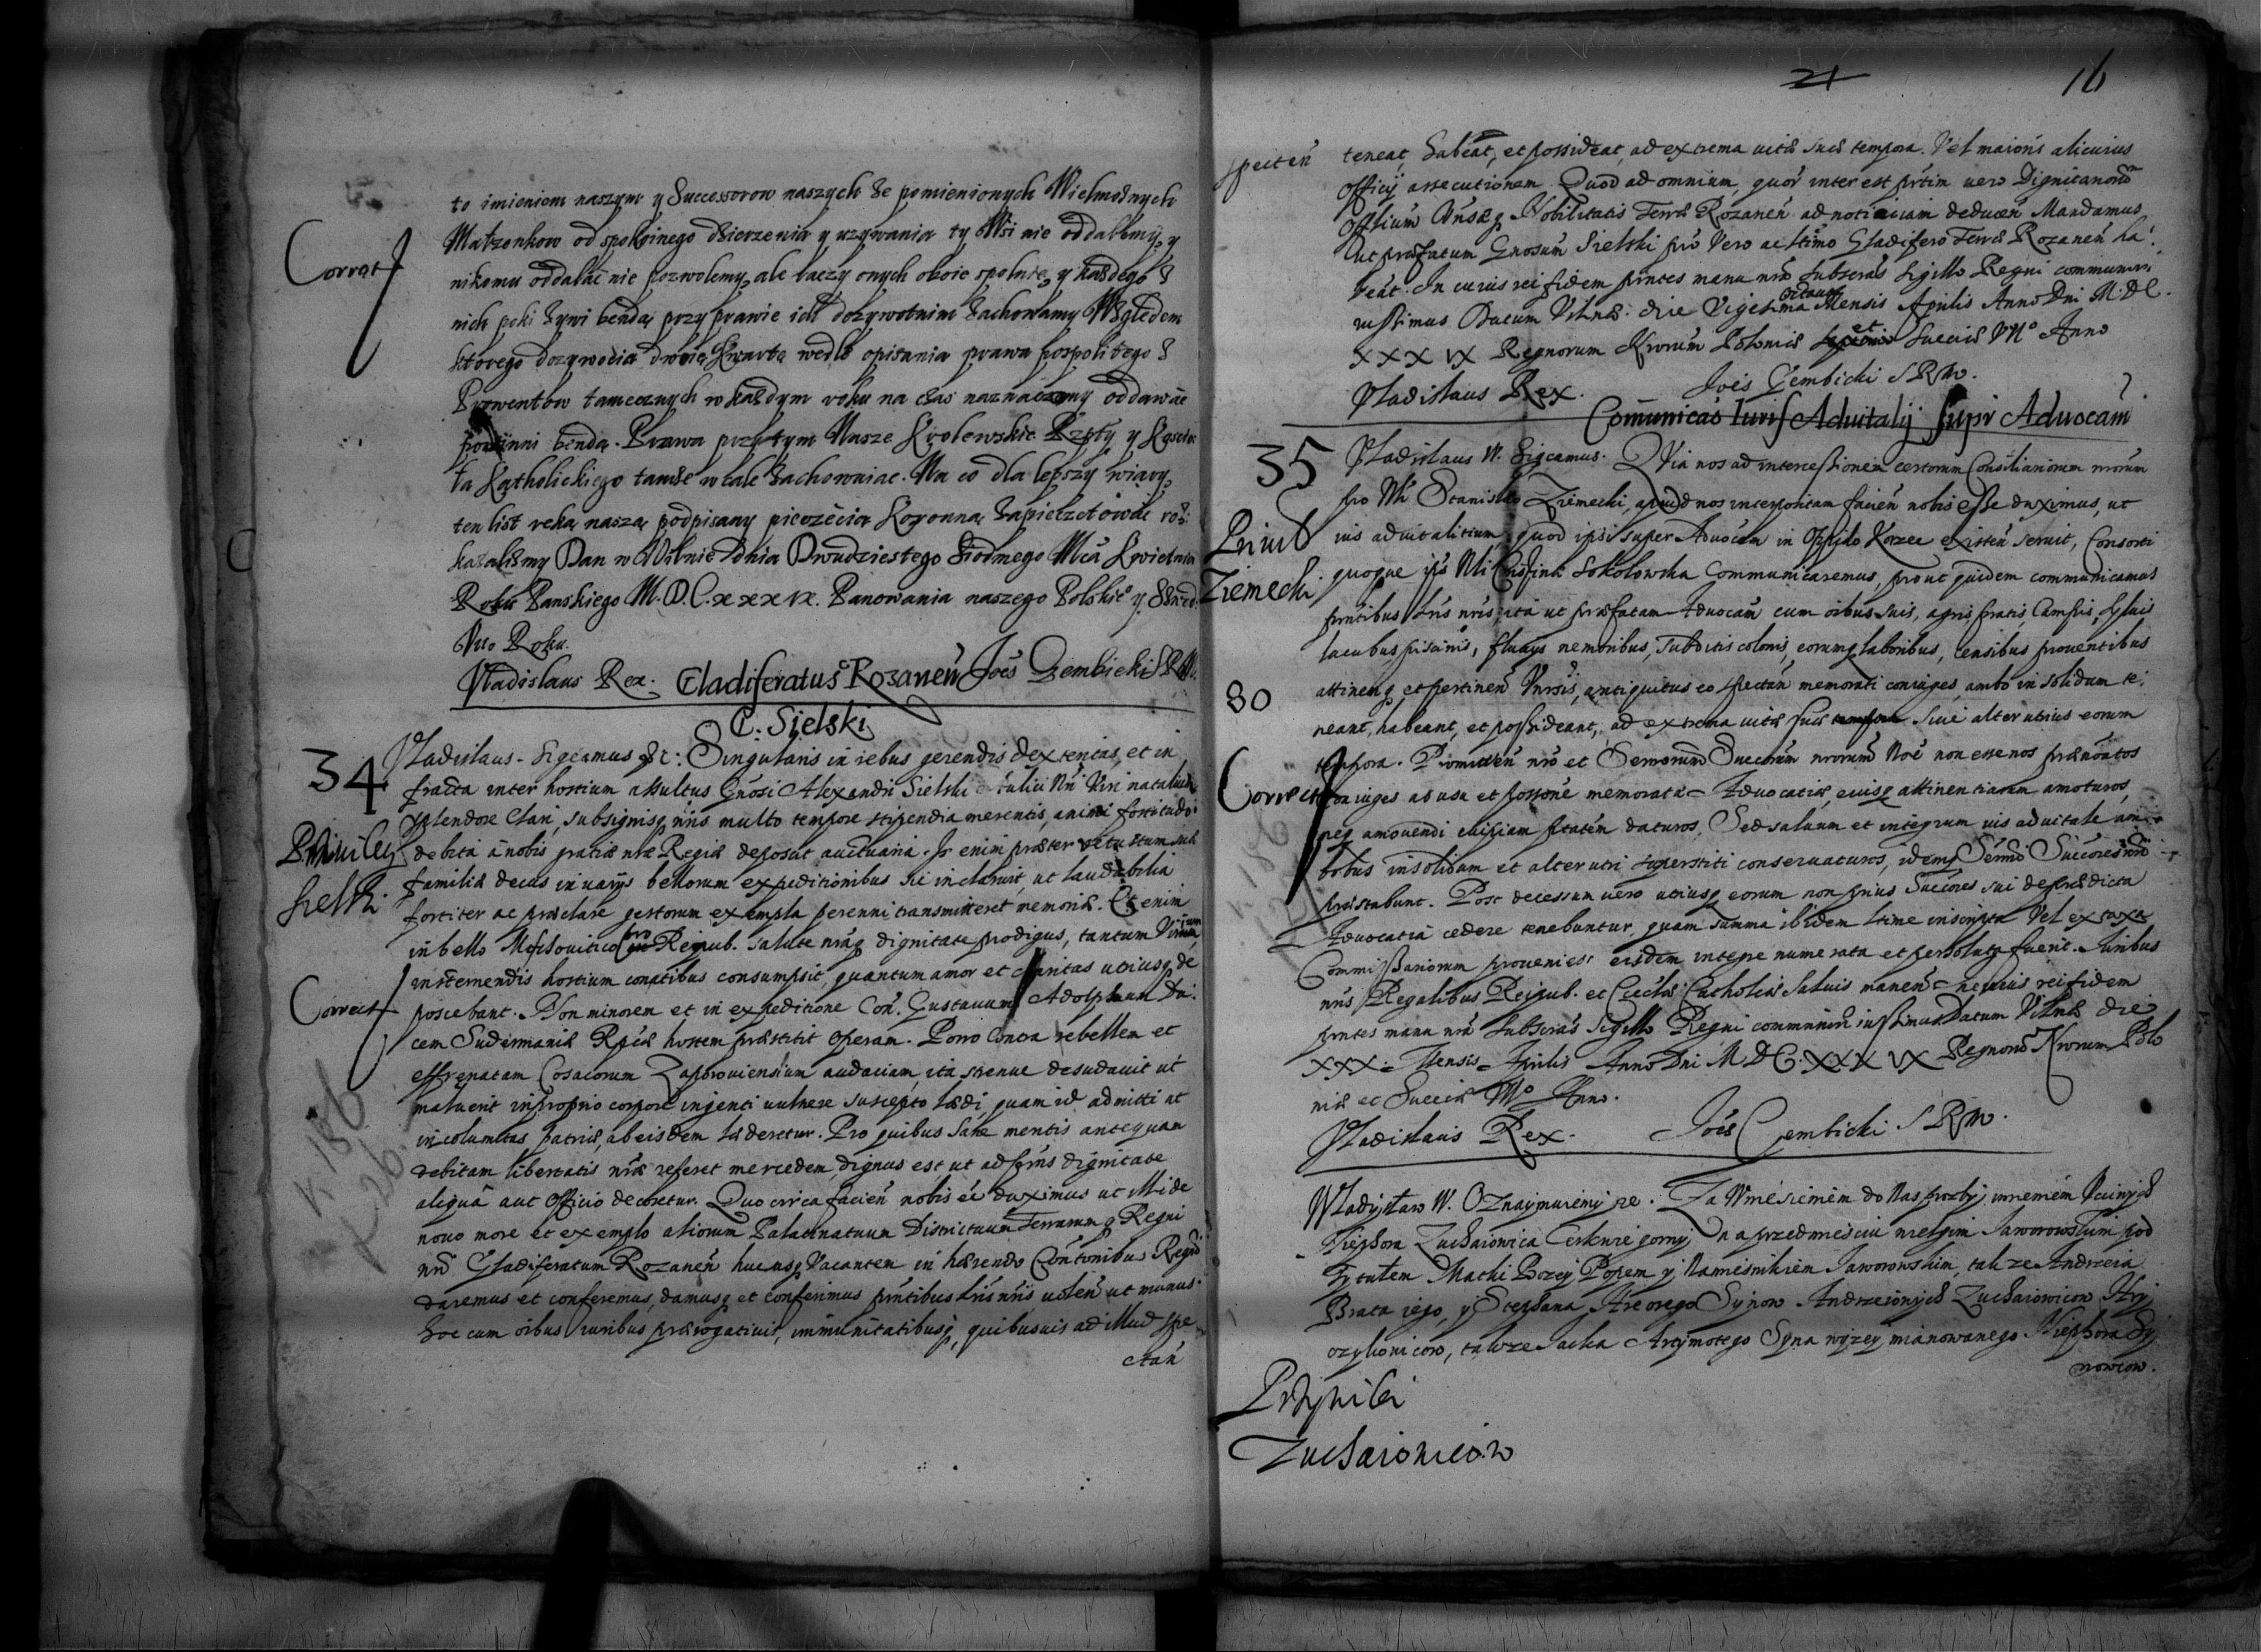 to imieniem naszym y Successorow naszych że pomienionych Wielmożnych
Małzonkow od spokoinego dzierzenia y uzywania ty Wsi nie oddalemy, y
Correct
nikomu oddalać nie pozwolemy, ale raczy onych oboie społnie, y każdego z
nich poki żywi bendą przy prawie ich dozywotnim zachowamy Względem
ktorego dozywocia dwoią kwartę wedle opisania prawa pospolitego z
Prowentow tamecznych w każdym roku na czas naznaczony oddawać
powinni bendą. Prawa przy tym Nasze Krolewskie Rzpty y Koscio
ła Katholickiego tamże w cale zachowuiac. Na co dla lepszy wiary,
ten list ręką naszą podpisany pieczęcią Koronną zapieczętować roz:
kazalismy Dan w Wilnie dnia Dwudziestego Siodmego Mca Kwietnia
Roku Panskiego M.D.C.xxxix. Panowania naszego Polskie° y Szwed.
Roku.
Vladislaus Rex. Gladiferatus Rozaneń Joes Gembicki SRM.
G. Sielski
34
Vladislaus. Sigcamus &c: Singularis in rebus gerendis dexteritas, et in
fracta inter hostium assultus Gnosi Alexandri Sielski
splendore clari, subsignisq nris multo tempore stipendia merentis, animi fortitudo
Priuiley
Sielski
debita a nobis gratiæ nræ Regiæ deposcit auctuaria. Is enim præter vetustum suæ
familiæ decus in uarijs bellorum expeditionibus sic inclaruit, ut laudabilia
fortiter ac præclare gestorum exempla perenni transmitteret memoriæ. Etenim
in bello Moschouitico pro Reipub. salute nraq dignitate prodigus, tantum Virium,
in sternendis hostium conatibus consumpsit, quantum amor et charitas utriusq de
Correct
poscebant. Non minorem et in expeditione Con. Gustauum Adolphum Du:
cem Sudermaniæ hostem præstitit operam. Porro contra rebellem et
effrenatam Cosacorum Zaporouiensium audaciam, ita strenue desudauit ut
maluerit in proprio corpore ingenti uulnere suscepto lædi, quam id admitti ut
incolumitas patriæ, ab eisdem læderetur. Pro quibus sane mentis antequam
debitam libertatis nræ referet mercedem, dignus est ut dignitate
aliqua aut Officio decoretur. Quo circa facień nobis ee duximus ut illi de
nouo more et exemplo aliorum Palatinatuum Districtuum Terrarumq Regni
nri Gladiferatum Rozaneń hucusq Vacantem in hærendo Con̄tonibus Regni
daremus et conferemus, damusq et conferimus prntibus Lris nris uoleń ut munus
hoc cum oibus iuribus prærogatiuis, immunitatibusq, quibusuis ad illud spe
ctań
21 16
specteń teneat, habeat, et possideat, ad extrema uitæ suæ tempora. Vel maioris alicuius
Officij assecutionem. Quod ad omnium, quor interest prtim uero Dignitariorum
Officium Vnsæq Nobilitatis Terræ Rozaneń ad noticiam deduceń Mandamus
ut præfatum Gnosum Sielski pro Vero ac ltimo Gladifero Terræ Rozaneń ha:
beat. In cuius rei fidem prntes manu nra subscras Sigillo Regni communiri
iussimus Datum Vilnæ die Vigesima octaua Mensis Aprilis Anno Dni M.DC.
XXXIX Regnorum Nrorum Poloniæ et Sueciæ VII° Anno
Vladislaus Rex. Joes Gembicki SRM.
Comunicao Iuris Aduitalij supr Aduocam
35
Vladislaus IV. Sigcamus. Quia nos ad intercessionem certorum Consiliariorum nrorum
pro Nli Stanislao Ziemecki, apud nos interpositam facień nobis esse duximus, ut
Priuil
Ziemecki
ius aduitalitium quod ipsi super Aduocam in Oppido Korzec existeń seruit, Consorti
quoque ipsius Nli Sokołowska communicaremus, prout quidem communicamus
prntibus Lris nris, ita ut præfatam Aduocam cum oibus suis, agris pratis, Campis, syluis
lacubus piscinis, fluuijs nemoribus, subditis colonis, eorumq laboribus, censibus prouentibus
80
attinenq, et pertineń Vnrsis, antiquitus eo spectań memorati coniuges, ambo in solidum te:
neant, habeant, et possideant, ad extrema uitæ suæ siue alterutrius eorum
tempora. Promitteń nro et Sernorum Succrum nrorum Noe non esse nos prænoatos
Correct
coniuges ab usu et possone memoratæ Aduocatiæ, eiusq attinentiarum amoturos,
neq amouendi cuipiam ptatem daturos, Sed saluum et integrum ius aduitale am:
bobus in solidum et alterutri superstiti conseruaturos, idemq Sernmi Succores nri
præstabunt. Post decessum uero utriusq eorum non prius Succores sui de prædicta
Aduocatia cedere tenebuntur, quam summa ibidem ltime inscripta Vel ex taxa
Commissariorum proueniens eisdem integre numerata et persoluta fuerit. Iuribus
nris Regalibus Reipub. et Ecclæ Catholicæ saluis maneń In cuius rei fidem
prntes manu nra subscras Sigillo Regni communiri iussimus Datum Vilnæ die
XXX. Mensis Aprilis Anno Dni M.DC.XXXIX Regnorum Nrorum Polo
niæ et Sueciæ VII° Anno.
Vladislaus Rex. Joes Gembicki SRM.
Władysław IV. Oznaymuiemy ze. Za Wniesieniem do Nas prozby imieniem
Niephora Zuchaiowica Cerkwie gorny na przedmiesciu Jaworowskim pod
Tytułem Matki Bozey Popem y Namiesnikiem Jaworowskim, takze Andrzeia
Brata iego, y Stephana Synow Andrzeiowych Zuchaiowicow
takze Syna wyzey mianowanego Niephora Sy
nowcow.
Przywilei
Zuchaiowicow